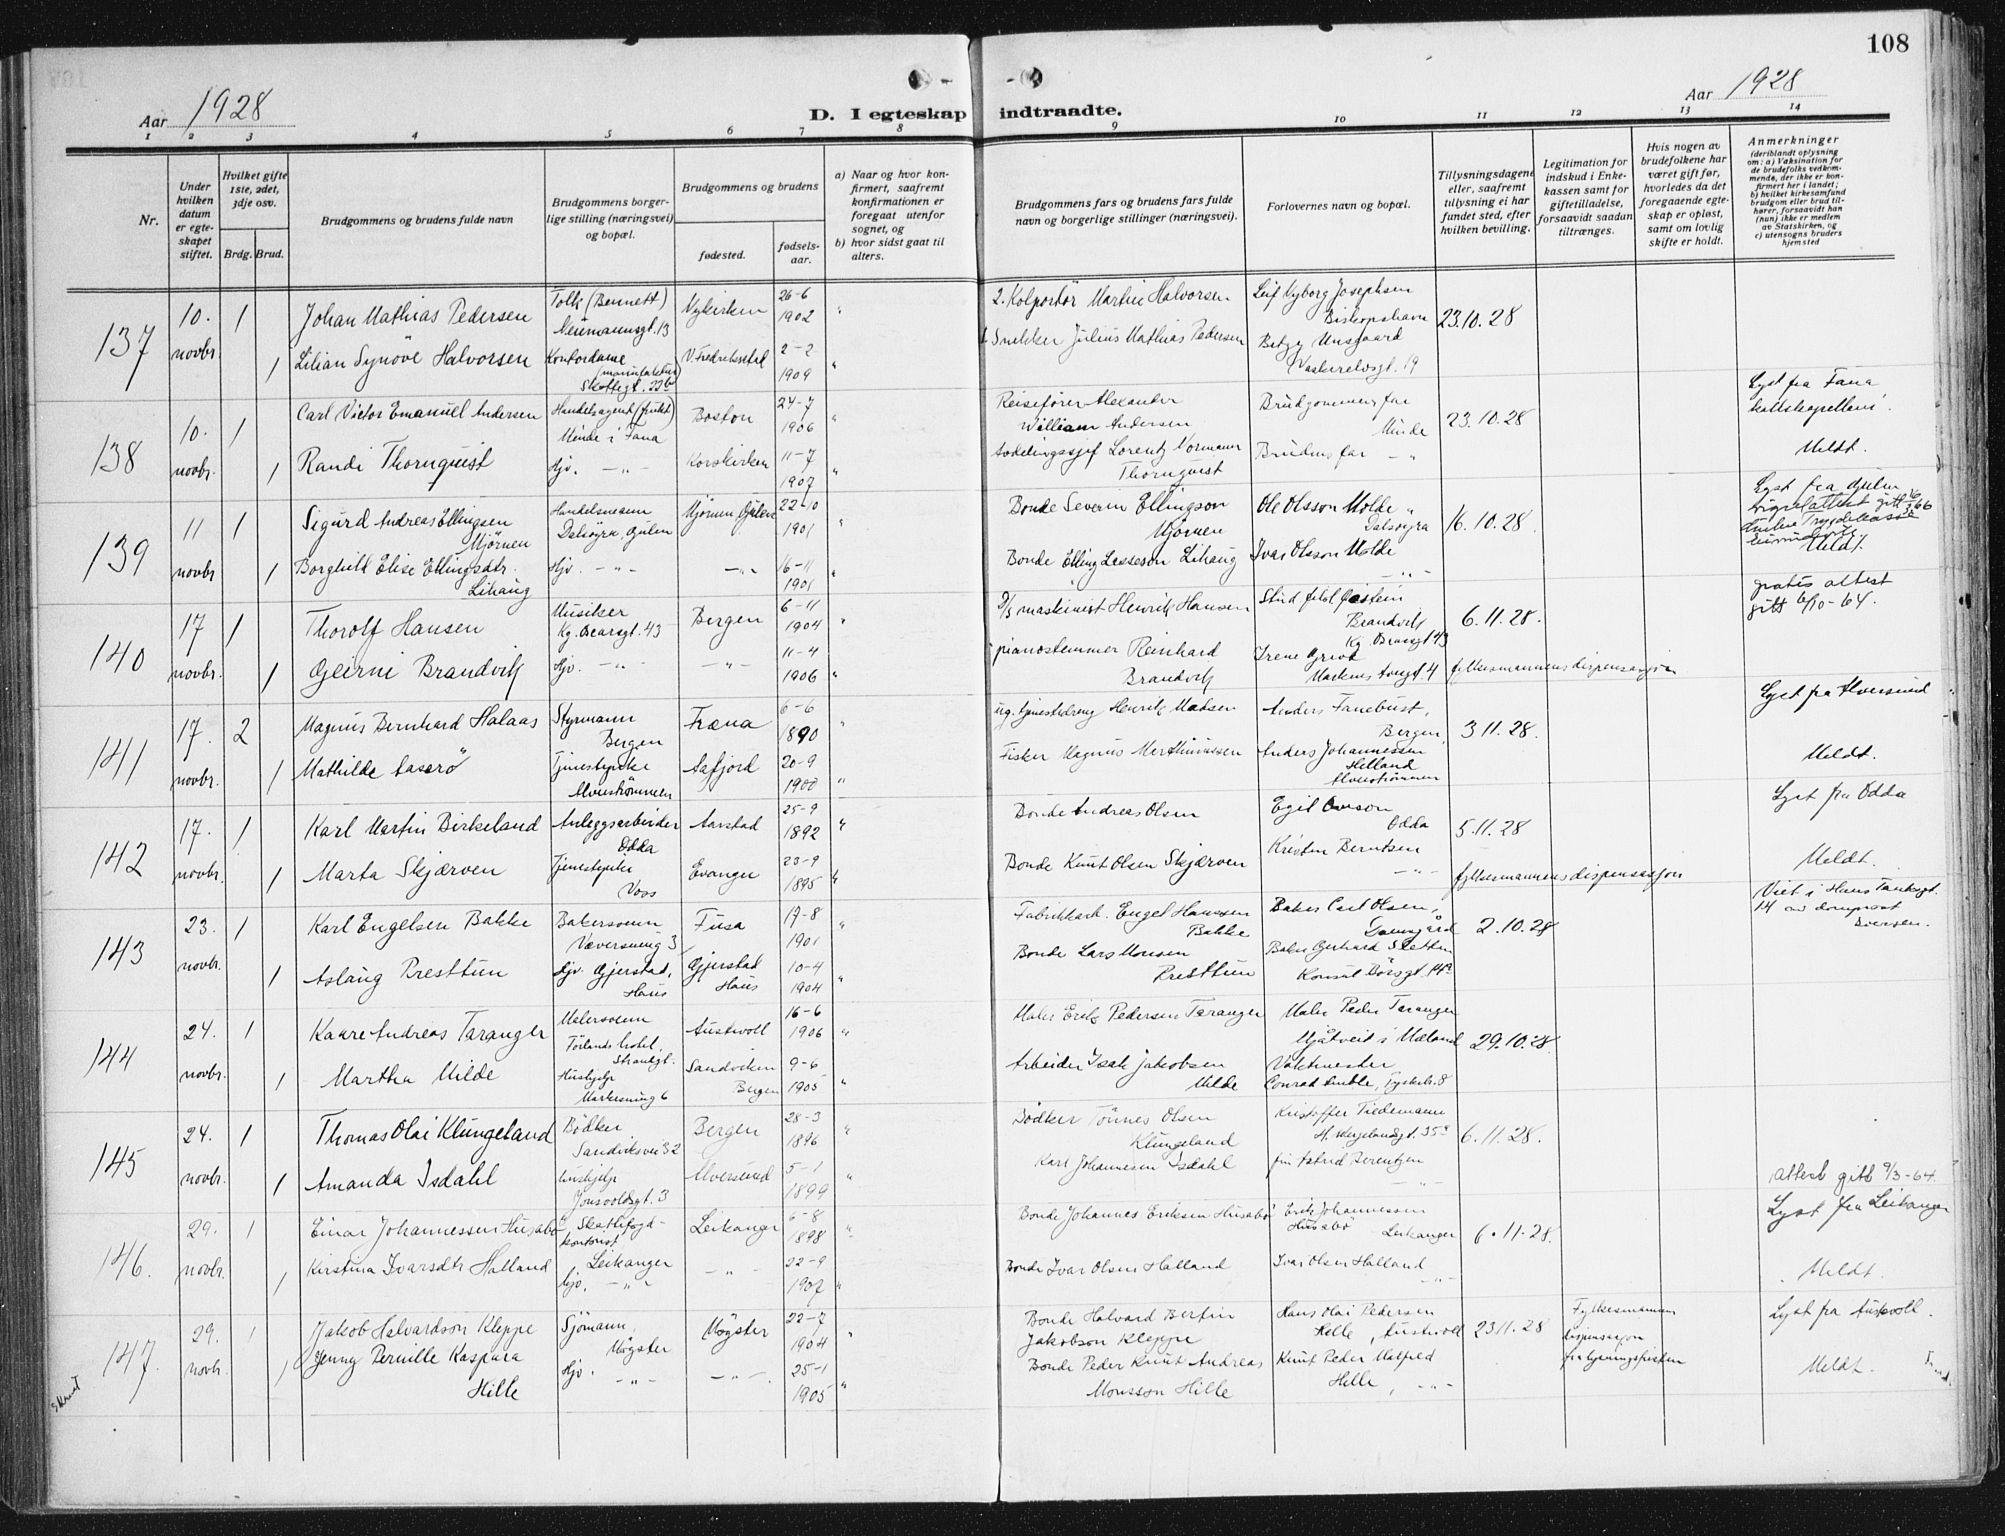 108
Aar 1928
D. I egteskap indtraadte.
Aar 1928
1 2 3 4 5 6 7 8 9 10 11 12 13 14
Nr.
Under hvilken datum er egteskapet stiftet.
Hvilket gifte 1ste, 2det, 3dje osv.
Brdg. Brud.
Brudgommens og brudens fulde navn
Brudgommens borgerlige stilling (næringsvei) og bopæl.
Brudgommens og brudens
fødested.
fødselsaar.
a) Naar og hvor konfirmert, saafremt konfirmationen er foregaat utenfor sognet, og
b) hvor sidst gaat til alters.
Brudgommens fars og brudens fars fulde navn og borgerlige stillinger (næringsvei).
Forlovernes navn og bopæl.
Tillysningsdagene eller, saafremt tillysning ei har fundet sted, efter hvilken bevilling.
Legitimation for indskud i Enkekassen samt for giftetilladelse, forsaavidt saadan tiltrænges.
Hvis nogen av brudefolkene har været gift før, hvorledes da det foregaaende egteskap er opløst, samt om lovlig skifte er holdt.
Anmerkninger
(deriblandt oplysning om: a) Vaksination for de brudefolks vedkommende, der ikke er konfirmert her i landet; b) hvilket kirkesamfund brudgom eller brud tilhører, forsaavidt han (hun) ikke er medlem av Statskirken, og c) utensogns bruders hjemsted
137 10. novbr. 1 Johan Mathias Pedersen Tolk (Bennett) Neumannsgt. 13 Nykirken 26-6 1902 "
2. Kolportør Martin Halvorsen Leif Nyborg Josephsen Biskopshavn 23.10.28
1 Lilian Synöve Halvorsen Kontordame (manufaktur) Skottegt. 22b V. Fredrikstad 2-2 1909 "
1 Snekker Julius Mathias Pedersen Betzy Unsgaard 19
138 10. novbr. 1 Carl Victor Emanuel Andersen Handelsagent (frukt) Minde i Fana Boston 24-7 1906
Reisefører Alexander William Andersen Brudgommens far Minde 23.10.28 Lyst fra Fana
1 Randi Thornquist Hjv. - " - Korskirken 11-7 1907 "
Avdelingssjef Lorentz Normann Thornquist Brudens far - " Meldt.
139 11 novbr 1 Sigurd Andreas Ellingsen Mjömen Handelsmann Dalsöyra, Gulen Mjömen Gulen 22-10 1901 "
Bonde Severin Ellingson Mjömen Ole Olsson Molde Dalsöyra 16.10.28. Lyst fra Gulen
1 Borghild Elise Ellingsdtr. Lihaug Hjv. - " - - " - 16-11 1901 "
Bonde Elling Lasseson Lihaug Ivar Olsson Molde - " - Meldt.
140 17 novbr. 1 Thorolf Hansen Musiker Kg. Oscarsgt. 43 Bergen 6-11 1904 "
D/S maskinist Henrik Hansen Stud. filol. Øistein Brandvik Kg. Oscarsgt 43 6.11.28. gratis attest gitt 6/10-64.
1 Gjeirni Brandvik Hjv. - " - - " - 11-4 1906 "
pianostemmer Reinhard Brandvik Irene 4 fylkesmannens dispensasjon
141 17. novbr. 2 Magnus Bernhard Halaas Styrmann Bergen Fræna 6-6 1890 "
Henrik Madsen Anders Fanebust, Bergen 3.11.28. Lyst fra Alversund
1 Mathilde Aaserö Tjenestepike Alverströmmen Aafjord 20-9 1900 "
Fisker Magnus Anders Johannessen Helland Alverströmmen Meldt.
142 17. novbr. 1 Karl Martin Birkeland Anleggsarbeider Odda Aarstad 25-9 1892 "
Bonde Andreas Olsen Egil Odda 5.11.28 Lyst fra Odda
1 Marta Skjærven Tjenestepike Voss Evanger 23-9 1895 "
Bonde Knut Olsen Skjærven Kristen Berntsen - " - fylkesmannens dispensasjon Meldt.
143 23. novbr. 1 Karl Engelsen Bakke Bakersvenn Væversmug 3 Fusa 17-8 1901 "
Fabrikkarb. Engel Hanssen Bakke Baker Carl Olsen, 2.10.28 Viet i Hans Tanksgt. 14 av domprost Iversen.
1 Aslaug Presttun Hjv. Gjerstad, Haus Gjerstad Haus 10-4 1904 "
Bonde Lars Monsen Presttun Baker Gerhard Sletten Konsul Börsgt. 14a
144 24. novbr. 1 Kaare Andreas Taranger Malersvenn Hotel, Strandgt. Austevoll 16-6 1906 "
Maler Erik Pedersen Taranger Maler Peder Taranger Mjåtveit i Meland 29.10.28.
1 Martha Milde Hushjelp 6 Sandviken Bergen 9-6 1905 "
Arbeider Isak Jakobsen Milde Vaktmester Conrad 8
145 24. novbr. 1 Thomas Olai Klungeland Bödker Sandviksvei 32 Bergen 28-3 1896 "
Bödker Tönnes Olsen Klungeland Kristoffer Tiedemann H. Wergelandsgt. 35a 6.11.28.
1 Amanda Isdahl hushjelp 3 Alversund 5-1 1899 "
Karl Johannesen Isdahl frk Astrid Berentzen - " - attest gitt 9/3-64
146. 29. novbr. 1 Einar Johannessen Husabö Skattefogdkontorist Leikanger Leikanger 6-8 1898 "
Bonde Johannes Eriksen Husabö Erik Johannessen Husabö Leikanger 6.11.28. Lyst fra Leikanger
1 Kirstina Ivarsdtr Halland hjv. - " - - " - 22-9 1907 "
Bonde Ivar Olsen Halland Ivar Olsen Halland - " - Meldt.
147. 29. novbr. 1 Jakob Halvardson Kleppe Sjömann, Mögster Mögster 22-7 1904 "
Bonde Halvard Bertin Jakobson Kleppe Hans Olai Pedersen Helle, Austevoll 23.11.28 Fylkesmannens dispensasjon fra lysningsfristen Lyst fra Austevoll.
1 Jenny Pernille Kaspara Hille Hjv. - " - - " - 25-1 1905 "
Bonde Peder Knut Andreas Monsson Hille Knut Peder Malfred Helle, - " - Meldt.